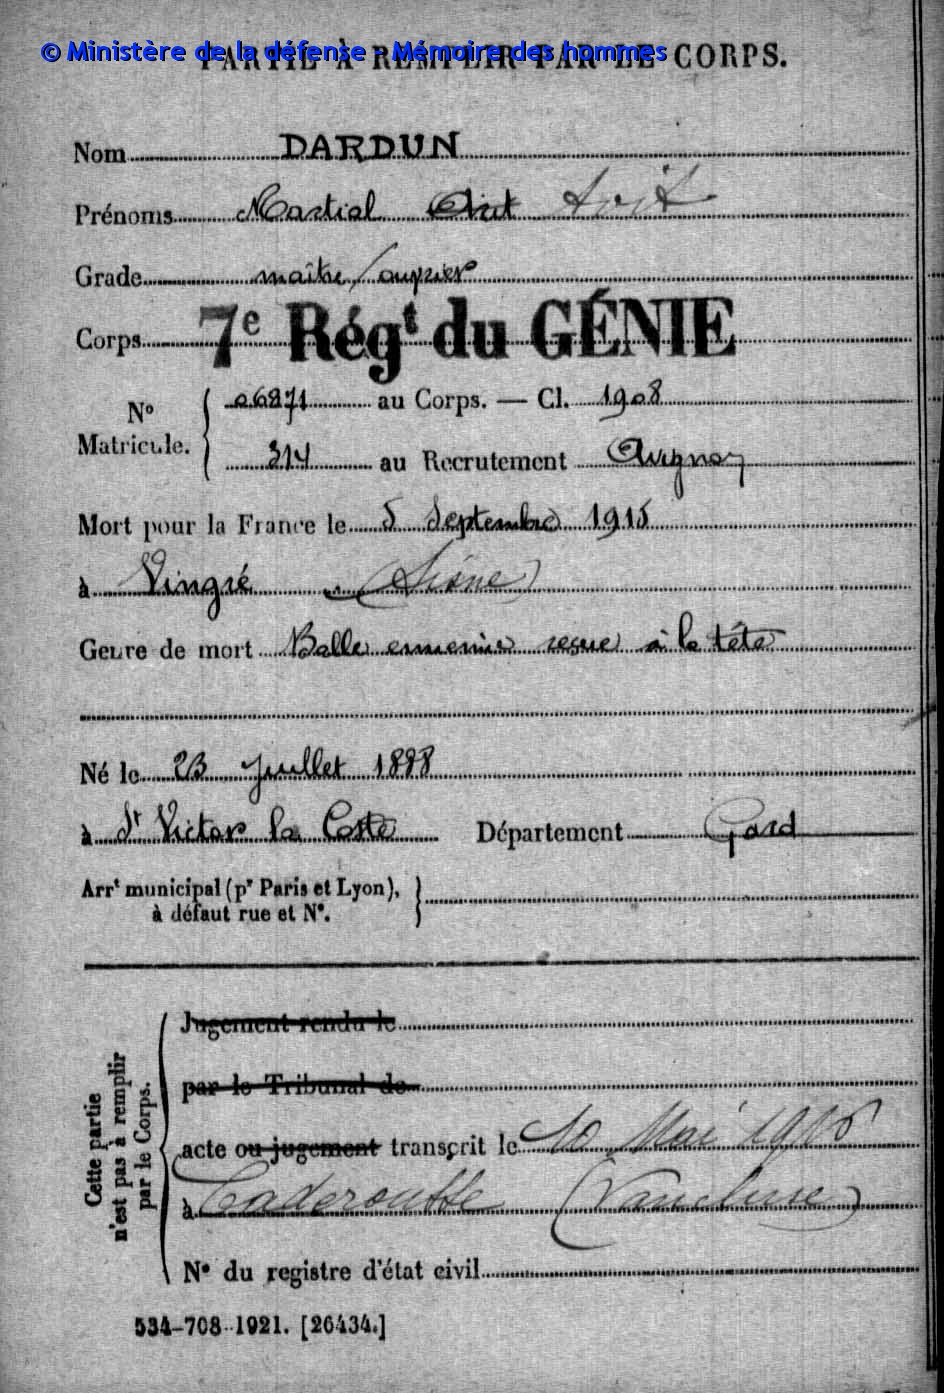 © Ministère de la défense - Mémoire des hommes
PARTIE À REMPLIR PAR LE CORPS.
Nom DARDUN
Prénoms Martial Avit Avit
Grade maître/ouvrier
Corps 7e Régt du GÉNIE
No Matricule. 06271 au Corps. — Cl. 1908
314 au Recrutement Avignon
Mort pour la France le 5 Septembre 1915
à Vingré (Aisne)
Genre de mort Balle ennemie reçue à la tête
Né le 23 Juillet 1888
à St Victor la Coste Département Gard
Arrt municipal (pr Paris et Lyon),
à défaut rue et No.
Cette partie
n'est pas à remplir
par le Corps.
Jugement rendu le
par le Tribunal de
acte ou jugement transcrit le 10 Mai 1916
à Caderousse (Vaucluse)
No du registre d'état civil
534-708-1921. [26434.]